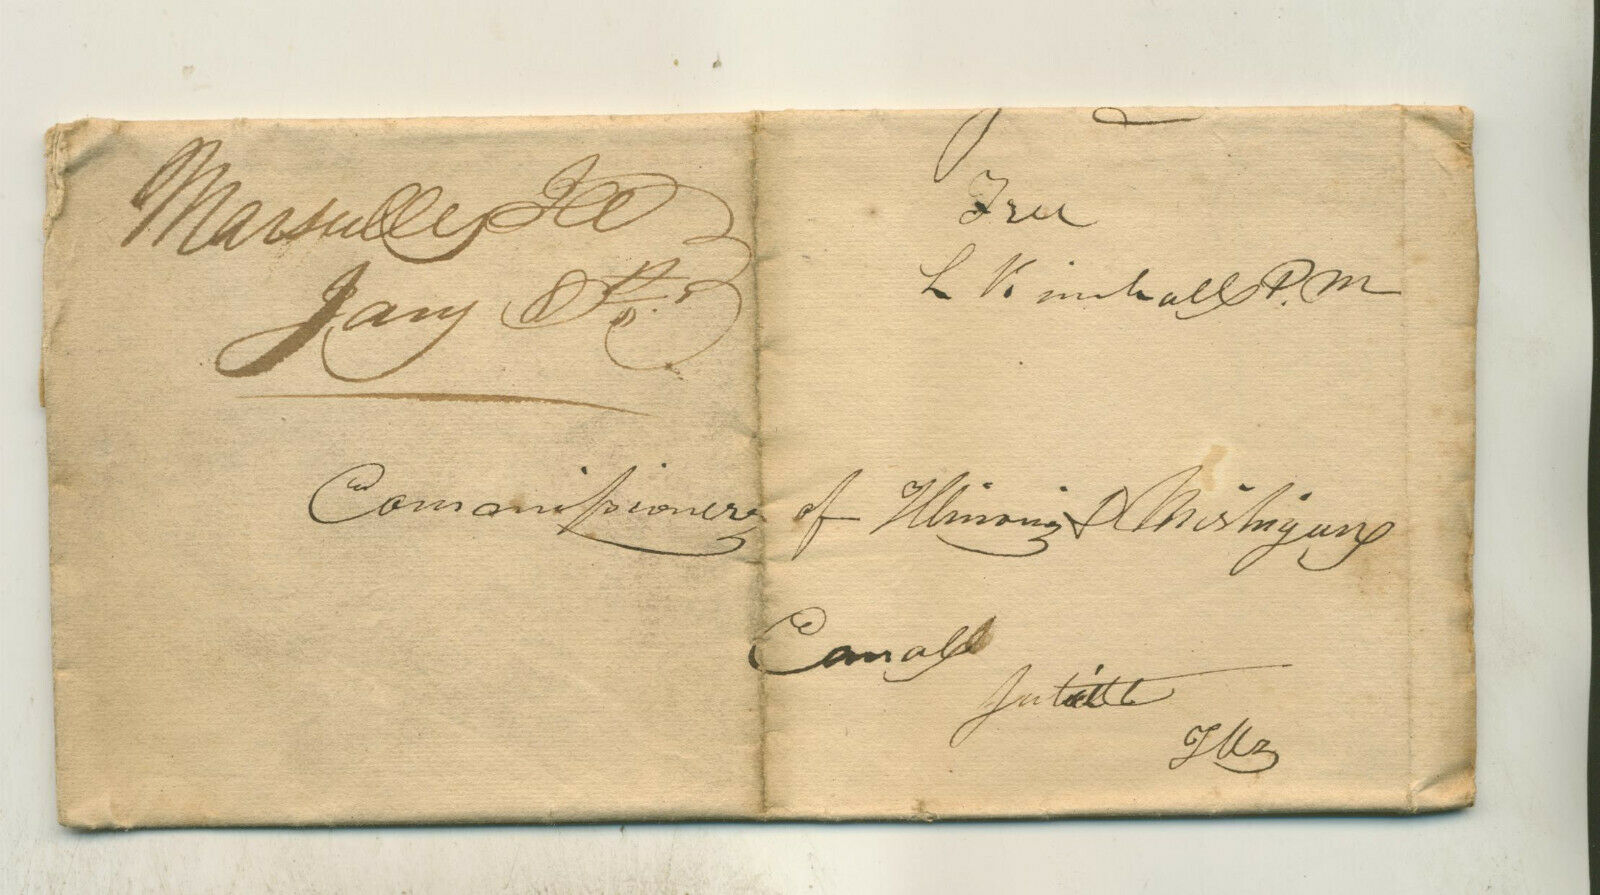 Marsielles Ill
Jany 8th
Free
L Kimball P.M
Commissioners of Illinois & Mishigan
Canall
Juliett
Ills